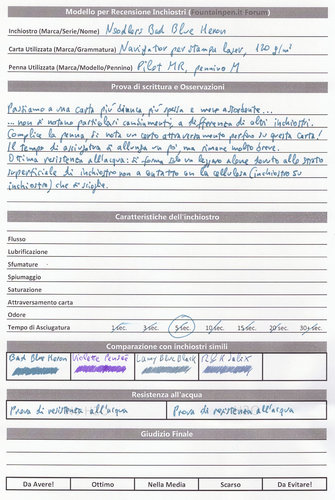 Modello per Recensione Inchiostri (Fountainpen.it Forum)
Inchiostro (Marca/Serie/Nome) Noodlers Bad Blue Heron
Carta Utilizzata (Marca/Grammatura) Navigator per stampa laser, 120 g/m²
Penna Utilizzata (Marca/Modello/Pennino) Pilot MR, pennino M
Prova di scrittura e Osservazioni
Passiamo a una carta più densa, più spessa e meno assorbente...
... non si notano particolari cambiamenti, a differenza di altri inchiostri.
Complice la penna, si nota un certo attraversamento perfino su questa carta!
Il tempo di asciugatura si allunga un po' ma rimane molto breve.
Ottima resistenza all'acqua: si forma solo un leggero alone dovuto allo strato
superficiale di inchiostro non a contatto con la cellulosa (inchiostro su
inchiostro) che si scioglie.
Caratteristiche dell'inchiostro
Flusso
Lubrificazione
Sfumature
Spiumaggio
Saturazione
Attraversamento carta
Odore
Tempo di Asciugatura 1 sec. 3 sec. 5 sec. 10 sec. 15 sec. 20 sec. 30+ sec.
Comparazione con inchiostri simili
Bad Blue Heron Violette Pensée Lamy Blue Black R&K Salix
Resistenza all'acqua
Prova di resistenza all'acqua Prova di resistenza all'acqua
Giudizio Finale
Da Avere! Ottimo Nella Media Scarso Da Evitare!